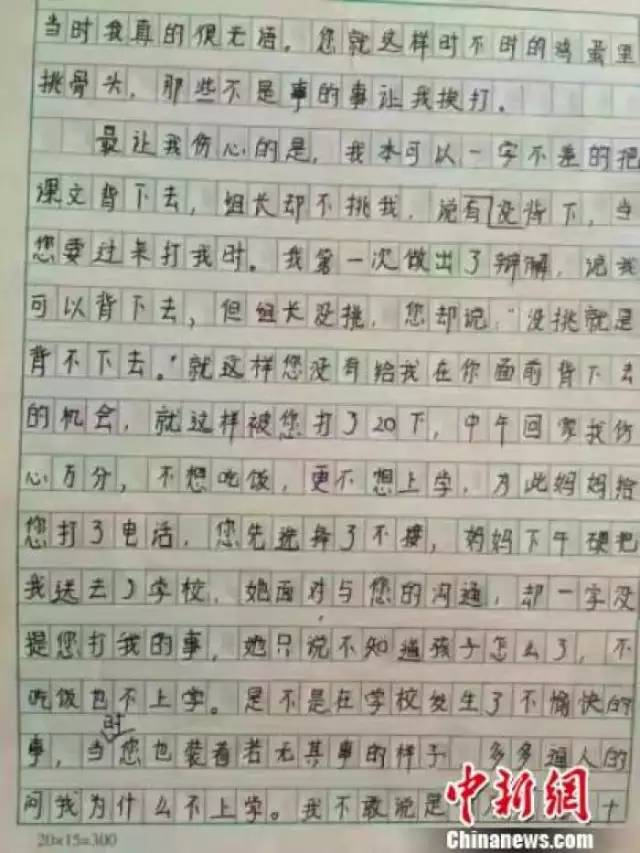 当时我真的很无语。您就这样时不时的鸡蛋里
挑骨头，那些不是事的事让我挨打。
最让我伤心的是，我本可以一字不差的把
课文背下去，组长却不挑我，说有没背下，当
您要过来打我时。我第一次做出了辩解，说我
可以背下去，但组长没挑，您却说，“没挑就是
背不下去。”就这样您没有给我在你面前背下去
的机会，就这样被您打了20下，中午回家我伤
心万分，不想吃饭，更不想上学，为此妈妈给
您打了电话，您先选择了不接，妈妈下午硬把
我送去了学校，她面对与您的沟通，却一字没
提您打我的事，她只说不知道孩子怎么了，不
吃饭也不上学。是不是在学校发生了不愉快的
事，当时您也装着若无其事的样子，多多逼人的
问我为什么不上学。我不敢说是 十
中新网
Chinanews.com
20×15=300